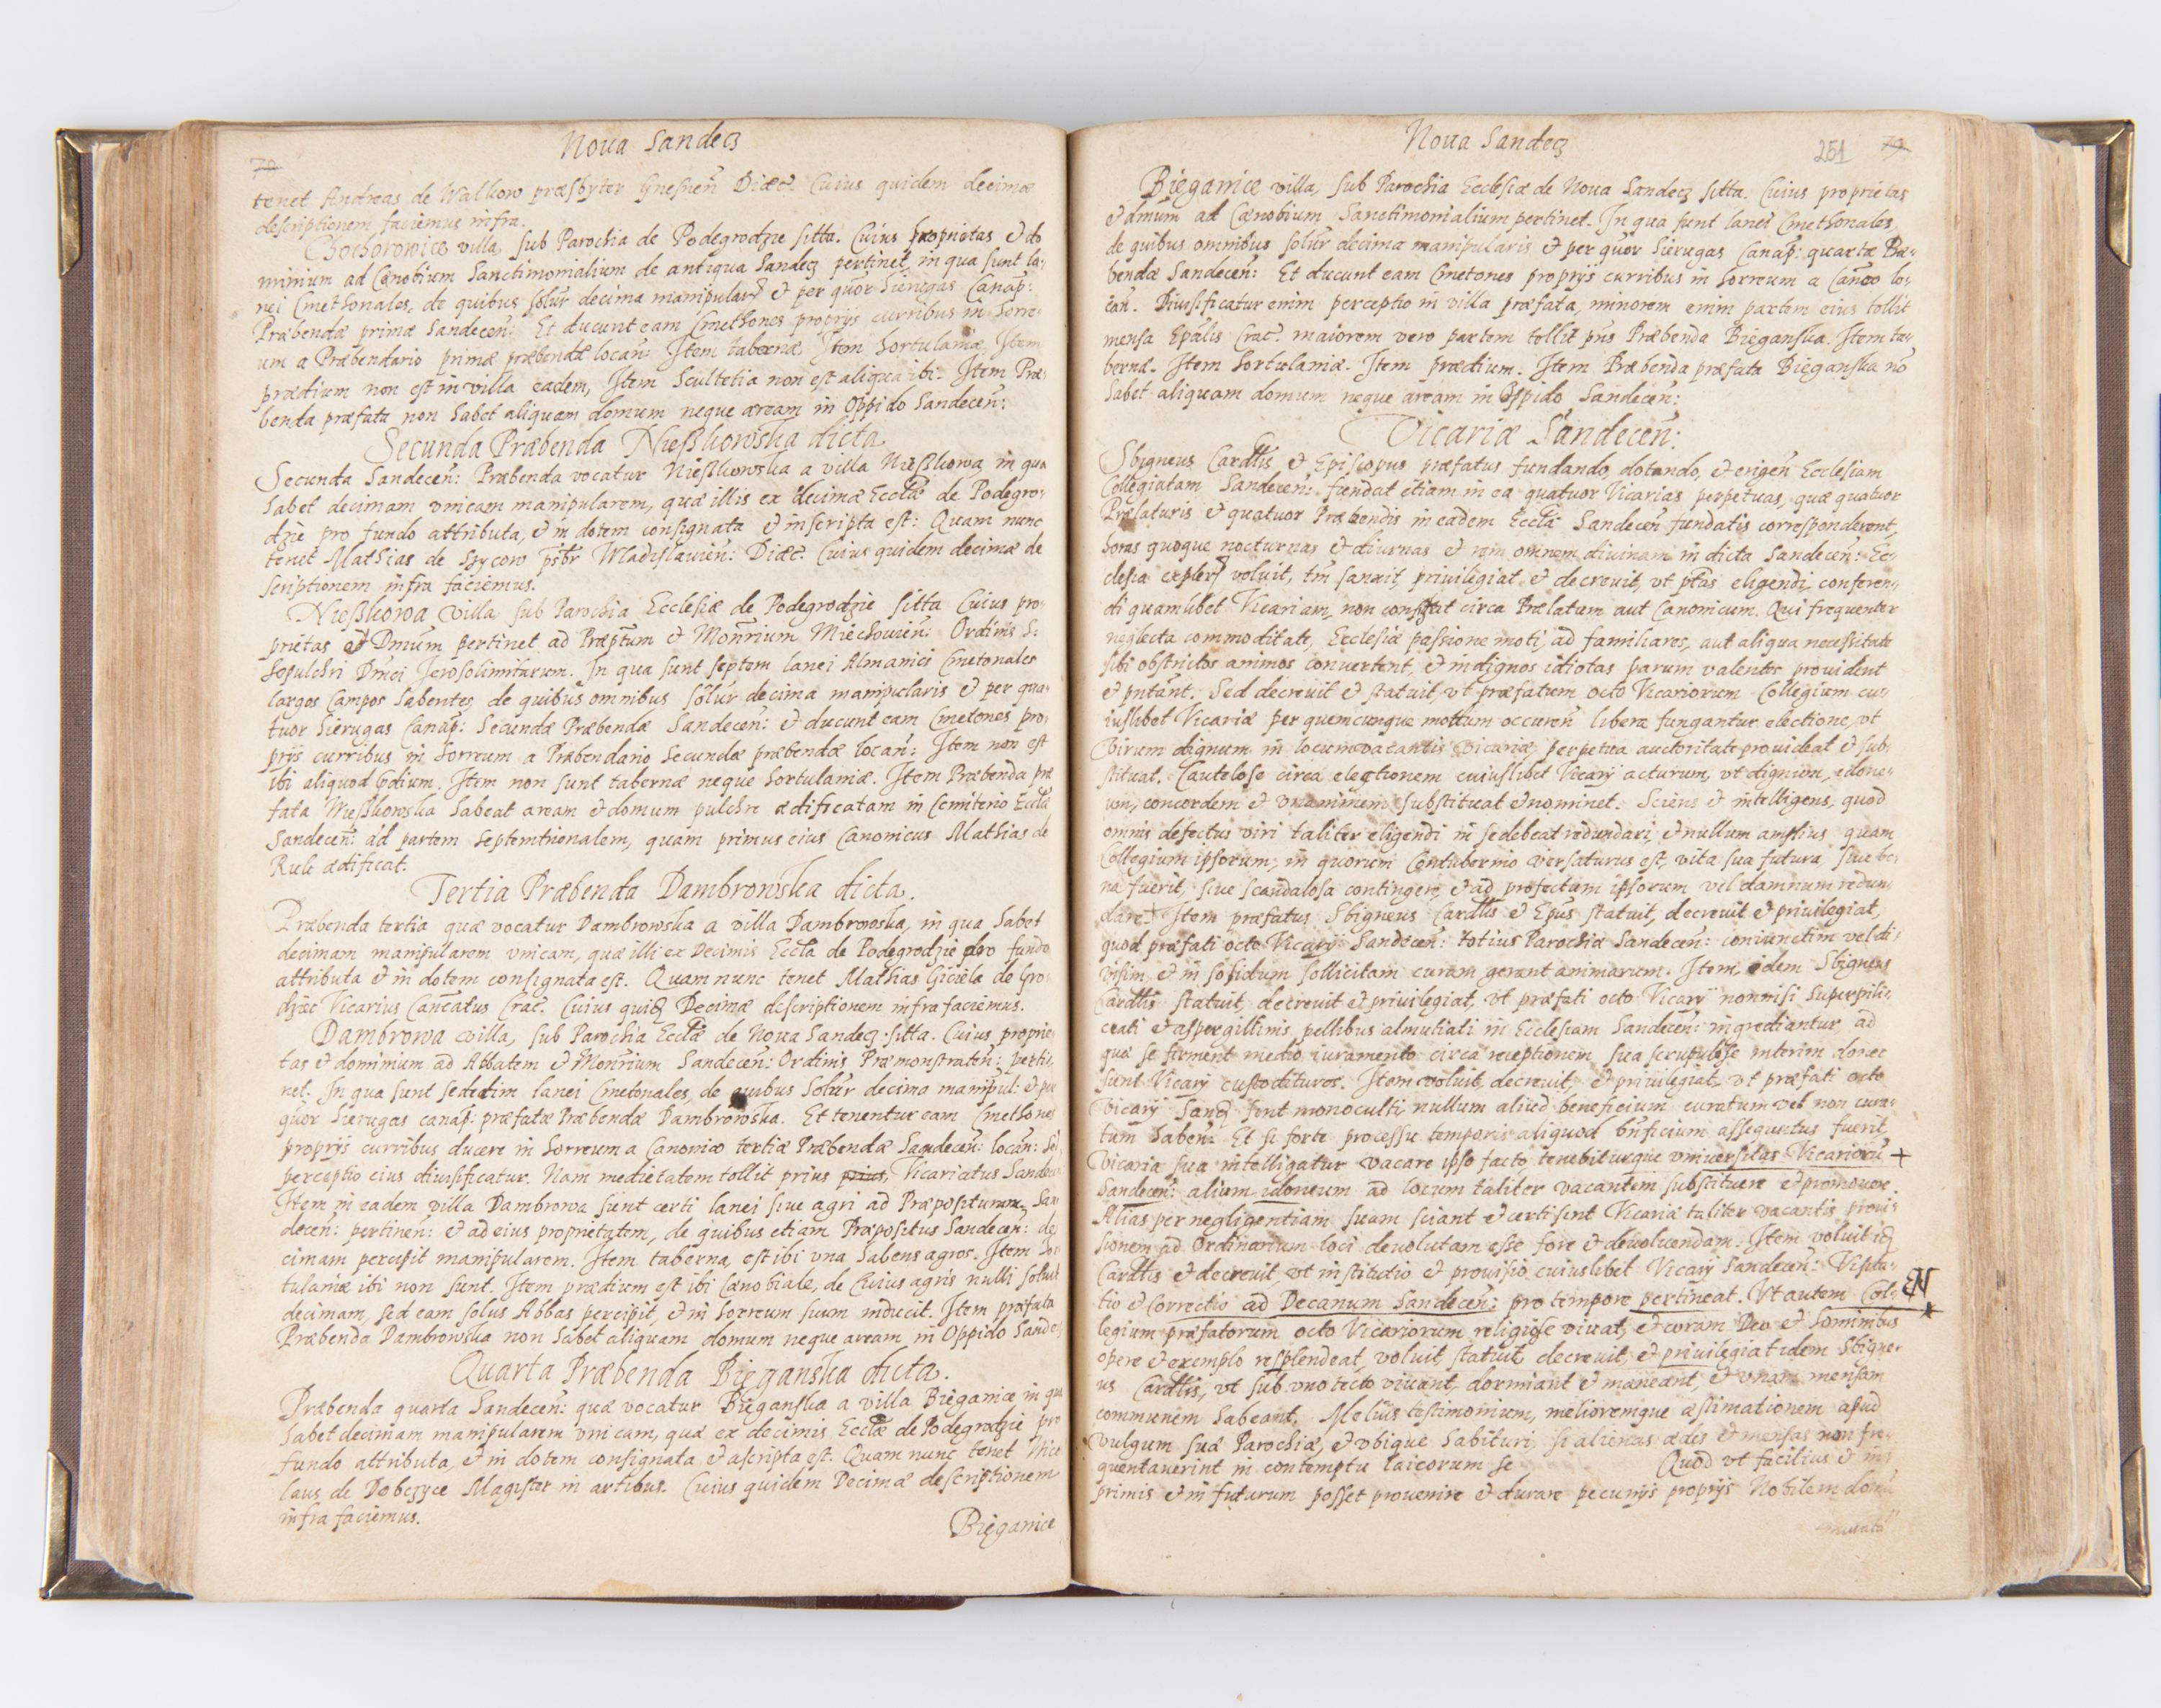 Noua Sandecz
70
tenet Andreas de Walkow præsbyter Gnesnen̄ Diæc̄. Cuius quidem decimæ
descriptionem faciemus infra.
Chochorowice villa, sub Parochia de Podegrodzie sitta. Cuius proprietas & do
minium ad Cænobium Sanctimonialium de antiqua Sandecz pertinet, in qua sunt la-
nei Cmethonales, de quibus solūr decima manipularis & per quōr Sierugas Canap:
Præbendæ primæ Sandecen̄: Et ducunt eam Cmethones proprijs curribus in horre-
um a Præbendario primæ præbendæ locan̄: Item tabernæ, Item hortulaniæ. Item
prædium non est in villa eadem, Item Scultetia non est aliqua ibi. Item Præ
benda præfata non habet aliquam domum neque aream in Oppido Sandecen̄:
Secunda Præbenda Nieszkowska dicta
Secunda Sandecen̄: Præbenda vocatur Nieszkowska a villa Nieszkowa, in qua
habet decimam vnicam manipularem, quæ illis ex decimæ Eccl̄æ de Podegro-
dzie pro fundo attributa, & in dotem consignata & inscripta est: Quam nunc
tenet Mathias de Szycow ps̄br̄ Wladislauien̄: Diæc̄. Cuius quidem decimæ de
scriptionem infra faciemus.
Nieszkowa villa, sub Parochia Ecclesiæ de Podegrodzie sitta Cuius pro-
prietas & Dnīum pertinet ad Præptūm & Monr̄ium Miechouien̄: Ordinis S:
Sepulchri Dnīci Jerosolimitarum. In qua sunt septem lanei Almanici Cmetonales
largos Campos habentes, de quibus omnibus solūr decima manipularis & per qua-
tuor Sierugas Canap: Secundæ Præbendæ Sandecen̄: & ducunt eam Cmetones pro-
prijs curribus in horreum a Præbendario Secundæ præbendæ locan̄: Item non est
ibi aliquod p̄dium. Item non sunt tabernæ neque hortulaniæ. Item Præbenda præ
fata Nieszkowska habeat aream & domum pulchre ædificatam in Cemiterio Eccl̄æ
Sandecen̄: ad partem Septemtrionalem, quam primus eius Canonicus Mathias de
Rule ædificat.
Tertia Præbenda Dambrowska dicta.
Præbenda tertia quæ vocatur Dambrowska a villa Dambrowska, in qua habet
decimam manipularem vnicam, quæ illi ex Decimis Eccl̄æ de Podegrodzie pro fundo
attributa & in dotem consignata est. Quam nunc tenet Mathias Giciele de Gro-
dziec Vicarius Cancatus Crac̄. Cuius quid Decimæ descriptionem infra faciemus.
Dambrowa villa, sub Parochia Eccl̄æ de Noua Sandecz sitta. Cuius proprie-
tas & dominium ad Abbatem & Monr̄ium Sandecen̄: Ordinis Præmonstraten̄: perti-
net. In qua sunt sedecim lanei Cmetonales, de quibus solūr decima manipul: & per
quōr Sierugas canap: præfatæ Præbendæ Dambrowska. Et tenentur eam Cmethones
proprijs curribus ducere in horreum a Canonico tertiæ Præbendæ Sandecen̄: locan̄: Sed
perceptio eius diuisificatur. Nam medietatem tollit prius prius, Vicariatus Sandecen
Item in eadem villa Dambrowa sunt certi lanei siue agri ad Præposituram, San-
decen̄: pertinen̄: & ad eius proprietatem, de quibus etiam Præpositus Sandecen̄: de-
cimam percipit manipularem. Item taberna, est ibi vna habens agros. Item hor-
tulaniæ ibi non sunt. Item prædium est ibi cænobiale, de cuius agris nulli soluit
decimam, sed eam solus Abbas percipit, & in horreum suum inducit. Item præfata
Præbenda Dambrowska non habet aliquam domum neque aream in Oppido Sandec
Quarta Præbenda Bieganska dicta.
Præbenda quarta Sandecen̄: quæ vocatur Bieganska a villa Bieganice in qua
habet decimam manipularem vnicam, quæ ex decimis Eccl̄æ de Podegrodzie pro
fundo attributa, & in dotem consignata & ascripta est. Quam nunc tenet Nico
laus de Dobczyce Magister in artibus. Cuius quidem Decimæ descriptionem
infra faciemus.
Bięganice
Noua Sandecz
251
Bięganice villa, sub Parochia Ecclesiæ de Noua Sandecz sitta. Cuius proprietas
& dnīum ad Cænobium Sanctimonialium pertinet. In qua sunt lanei Cmethonales
de quibus omnibus solūr decima manipularis & per quōr Sierugas Canap: quartæ Præ-
bendæ Sandecen̄: Et ducunt eam Cmetones proprijs curribus in horreum a Canco lo-
can̄. Diuisificatur enim perceptio in villa præfata, minorem enim partem eius tollit
mensa Epālis Crac̄. maiorem vero partem tollit pn̄s Præbenda Bieganska. Item ta-
berna. Item hortulaniæ. Item prædium. Item Præbenda præfata Bieganska nō
habet aliquam domum neque aream in Oppido Sandecen̄:
Vicariæ Sandecen̄:
Sbigneus Cardlis & Episcopus præfatus fundando, dotando, & erigen̄ Ecclesiam
Collegiatam Sandecen̄: fundat etiam in ea quatuor Vicarias perpetuas, quæ quatuor
Prælaturis & quatuor Præbendis in eadem Eccl̄a Sandecen̄ fundatis corresponderent,
horas quoque nocturnas & diurnas & rem omnem diuinam in dicta Sandecen̄: Ec-
clesia expleri voluit, tm̄ sanxit, priuilegiat & decreuit, vt ptās eligendi, conferen-
di quamlibet Vicariam, non consistat circa Prælatum aut Canonicum. Qui frequenter
neglecta commoditate, Ecclesiæ passione moti, ad familiares, aut aliqua necessitate
sibi obstrictos animos conuertent, & indignos idiotas parum valentes prouident
& pntānt. Sed decreuit & statuit, vt præfatum octo Vicariorum Collegium cu-
iuslibet Vicariæ per quemcunque modum occuren̄ libera fungantur electione, vt
virum dignum in locum vacantis vicariæ perpetua auctoritate prouideat & sub-
stituat. Cautelose circa electionem cuiuslibet Vicarij acturum, vt dignum, idone-
um, concordem & vnanimem substituat & nominet. Sciens & intelligens, quod
omnis defectus viri taliter eligendi in se debeat redundari, & nullum amplius quam
Collegium ipsorum, in quorum Contubernio versaturus est, vita sua futura, siue bo-
na fuerit, siue scandalosa contingere, & ad profectum ipsorum vel damnum redun
dare. Item præfatus Sbigneus Cardlis & Epūs statuit, decreuit & priuilegiat,
quod præfati octo Vicarij Sandecen̄: totius Parochiæ Sandecen̄: coniunctim vel di-
uisim, & in solidum sollicitam curam gerant animarum. Item, idem Sbigneus
Cardlis statuit, decreuit & priuilegiat, vt præfati octo Vicarij nonnisi Superpili-
ceati & aspergillinis, pellibus almutiati in Ecclesiam Sandecen̄: ingrediantur, ad
quæ se firment medio iuramento circa receptionem sua scrupulose interim donec
sunt Vicarij custodituros. Item voluit, decreuit, & priuilegiat, vt præfati octo
vicarij Sand sint monoculti, nullum aliud beneficium curatum vel non cura-
tum haben̄. Et si forte processu temporis aliquod bn̄ficium assequutus fuerit,
vicaria sua intelligatur vacare ipso facto, tenebiturque vniuersitas Vicariorū +
Sandecen̄: alium idoneum ad locum taliter vacantem substituere & promouere.
Alias per negligentiam suam sciant & certi sint Vicariæ taliter vacantis proui-
sionem ad Ordinarium loci deuolutam esse fore & deuoluendam. Item voluit id
Cardlis & decreuit, vt institutio & prouisio cuiuslibet Vicarij Sandecen̄: Visita-
tio & Correctio ad Decanum Sandecen̄: pro tempore pertineat. Vt autem Col-
legium præfatorum octo Vicariorum religiose viuat, & coram Deo & hominibus
opere & exemplo resplendeat, voluit, statuit, decreuit, & priuilegiat idem Sbigne-
us Cardlis, vt sub vno tecto viuant, dormiant & maneant, & vnam mensam
communem habeant. Melius testimonium, melioremque æstimationem apud
vulgum suæ Parochiæ, & vbique habituri, si alienas ædes & mensas non fre-
quentauerint in contemptu laicorum se Quod vt facilius & in
primis & in futurum posset prouenire & durare pecunijs proprijs Nobilem domū